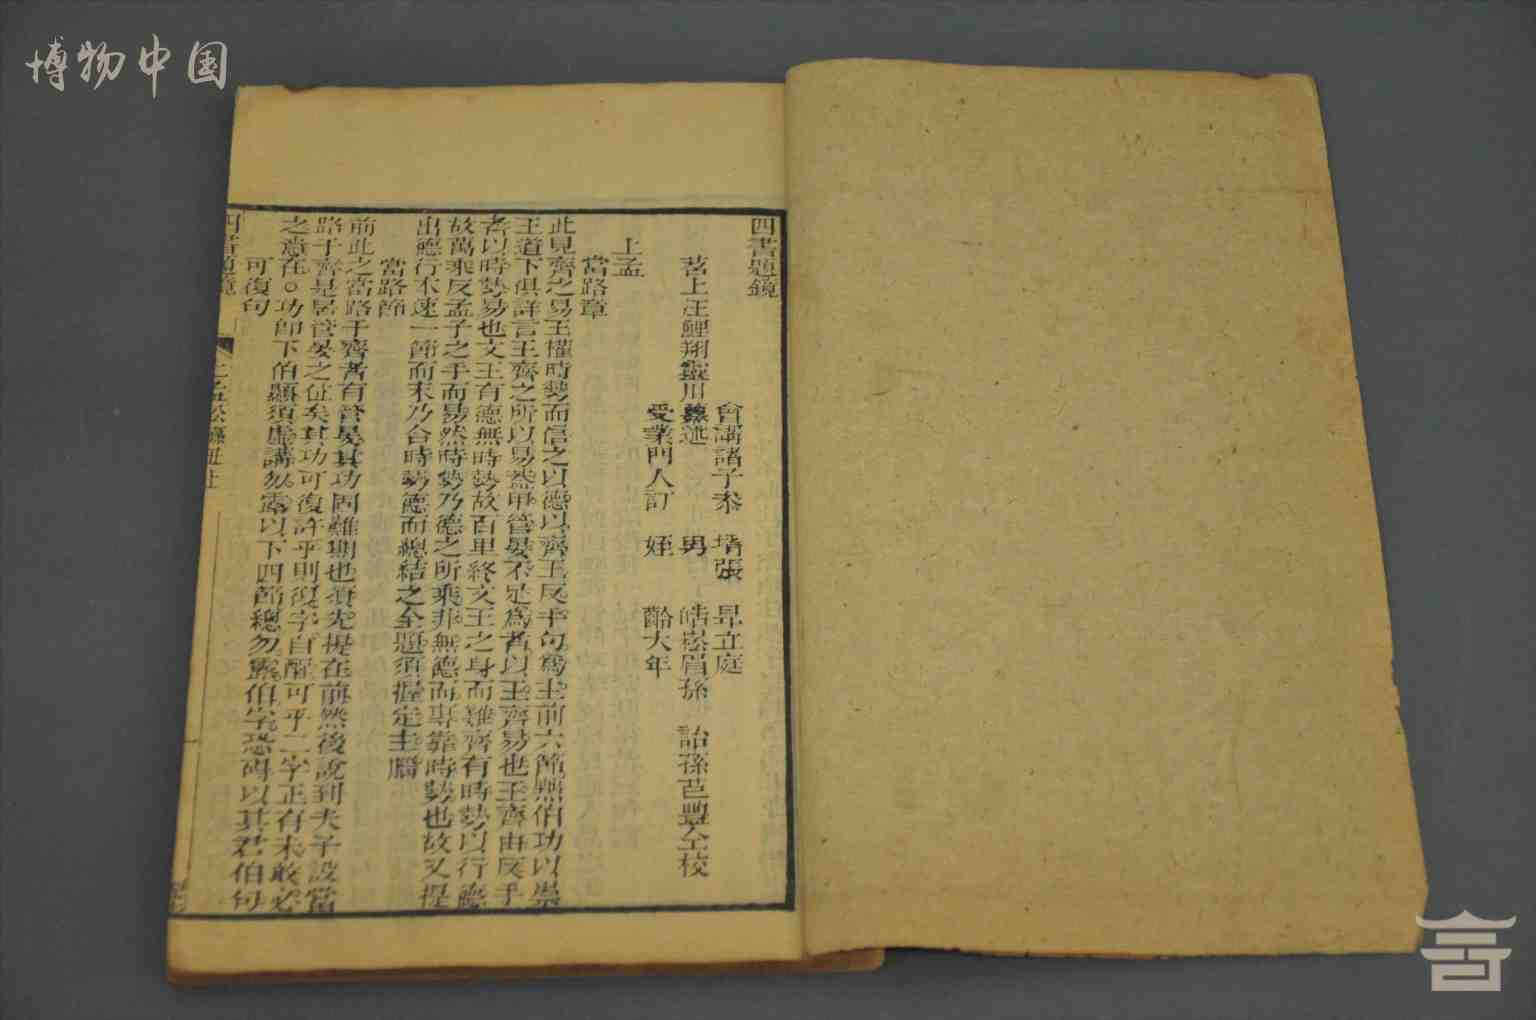 博物中国
四書題鏡
苕上汪鯉翔靈川纂述
會講諸子叅
受業門人訂
壻張 昂立庭
男 皓崧眉孫 詒孫芑豐仝校
姪 齡大年
上孟
當路章
此見齊之易王權時勢而信之以德以齊王反手句爲主前六節黜伯功以崇
王道下俱詳言王齊之所以易葢甲管晏不足爲者以王齊易也王齊由反手
者以時勢易也文王有德無時勢故百里終文王之身而難齊有時勢以行德
故萬乘反孟子之手而易然時勢乃德之所乘非無德而專靠時勢也故又提
出德行不速一節而末乃合時勢德而總結之全題須握定主腦
當路節
前此之當路于齊者有管晏其功固難期也須先提在前然後說到夫子設當
路于齊是居管晏之位矣其功可復許乎則復字自醒可乎二字正有未敢必
之意在○功卽下伯顯須虛講勿露以下四節總勿露伯字恐碍以其君伯句
可復句
四書題鏡